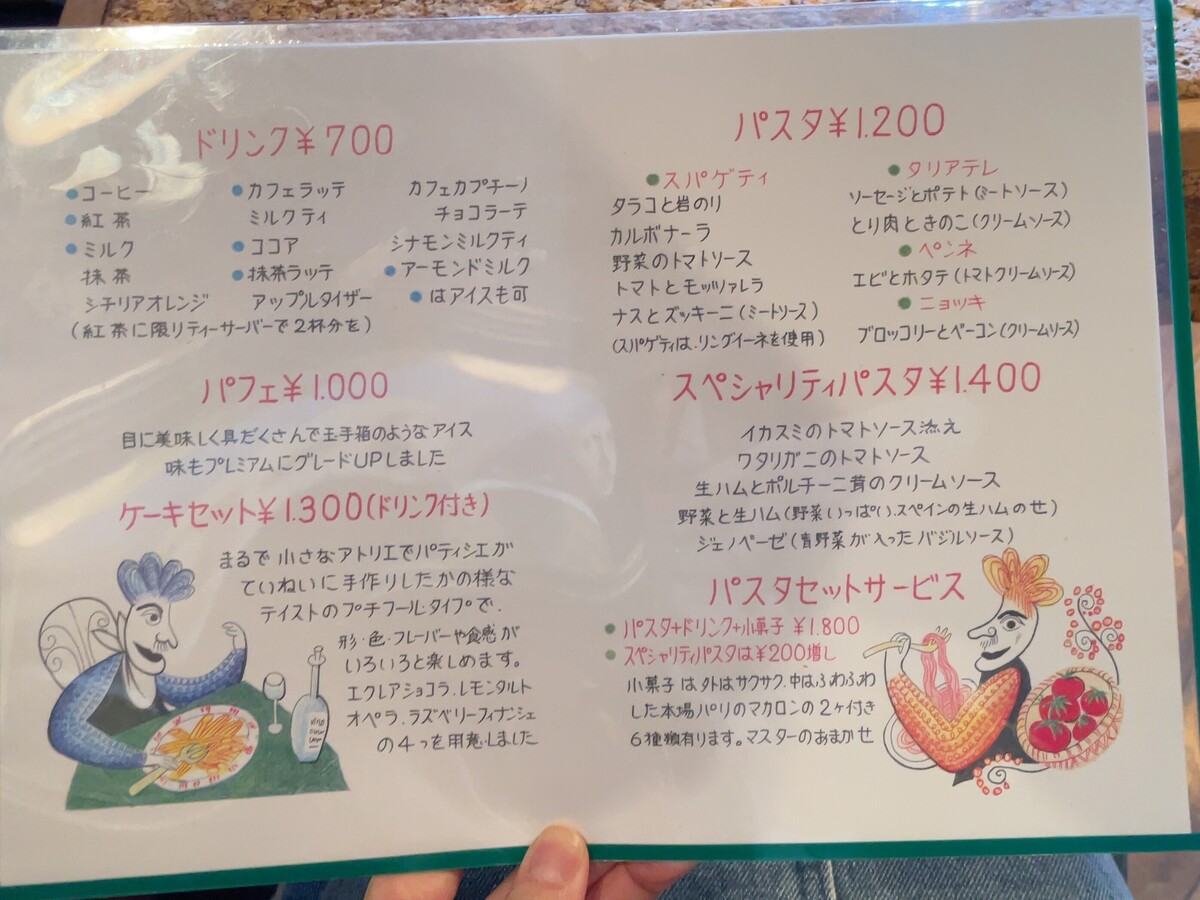 ドリンク¥700
●コーヒー ●カフェラッテ カフェカプチーノ
●紅茶 ミルクティ チョコラーテ
●ミルク ●ココア シナモンミルクティ
抹茶 ●抹茶ラッテ ●アーモンドミルク
シチリアオレンジ アップルタイザー ●はアイスも可
(紅茶に限りティーサーバーで2杯分を)
パフェ¥1.000
目に美味しく具だくさんで玉手箱のようなアイス
味もプレミアムにグレードUPしました
ケーキセット¥1.300(ドリンク付き)
まるで小さなアトリエでパティシエが
ていねいに手作りしたかの様な
テイストのプチフール・タイプで、
形・色・フレーバーや食感が
いろいろと楽しめます。
エクレアショコラ、レモンタルト
オペラ、ラズベリーフィナンシェ
の4つを用意しました
パスタ¥1.200
●スパゲティ
タラコと岩のり
カルボナーラ
野菜のトマトソース
トマトとモッツァレラ
ナスとズッキーニ(ミートソース)
(スパゲティは、リングイーネを使用)
●タリアテレ
ソーセージとポテト(ミートソース)
とり肉ときのこ(クリームソース)
●ペンネ
エビとホタテ(トマトクリームソース)
●ニョッキ
ブロッコリーとベーコン(クリームソース)
スペシャリティパスタ¥1.400
イカスミのトマトソース添え
ワタリガニのトマトソース
生ハムとポルチーニ茸のクリームソース
野菜と生ハム(野菜いっぱい、スペインの生ハムのせ)
ジェノベーゼ(青野菜が入ったバジルソース)
パスタセットサービス
●パスタ+ドリンク+小菓子 ¥1.800
●スペシャリティパスタは¥200増し
小菓子は外はサクサク、中はふわふわ
した本場パリのマカロンの2ヶ付き
6種類有ります。マスターのおまかせ